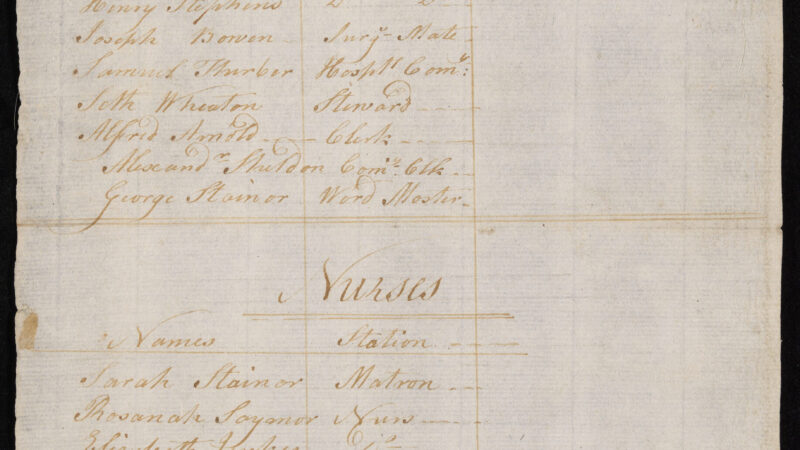 Henry Stephens D D
Joseph Bowen Surg. Mate
Samuel Thurber Hospl. Comy:
Seth Wheaton Steward
Alfred Arnold Clerk
Alexandr. Sheldon Comy. Clk
George Stainor Word Master
Nurses
Names Station
Sarah Stainor Matron
Rosanah Saymor Nurs
Elizabeth Do